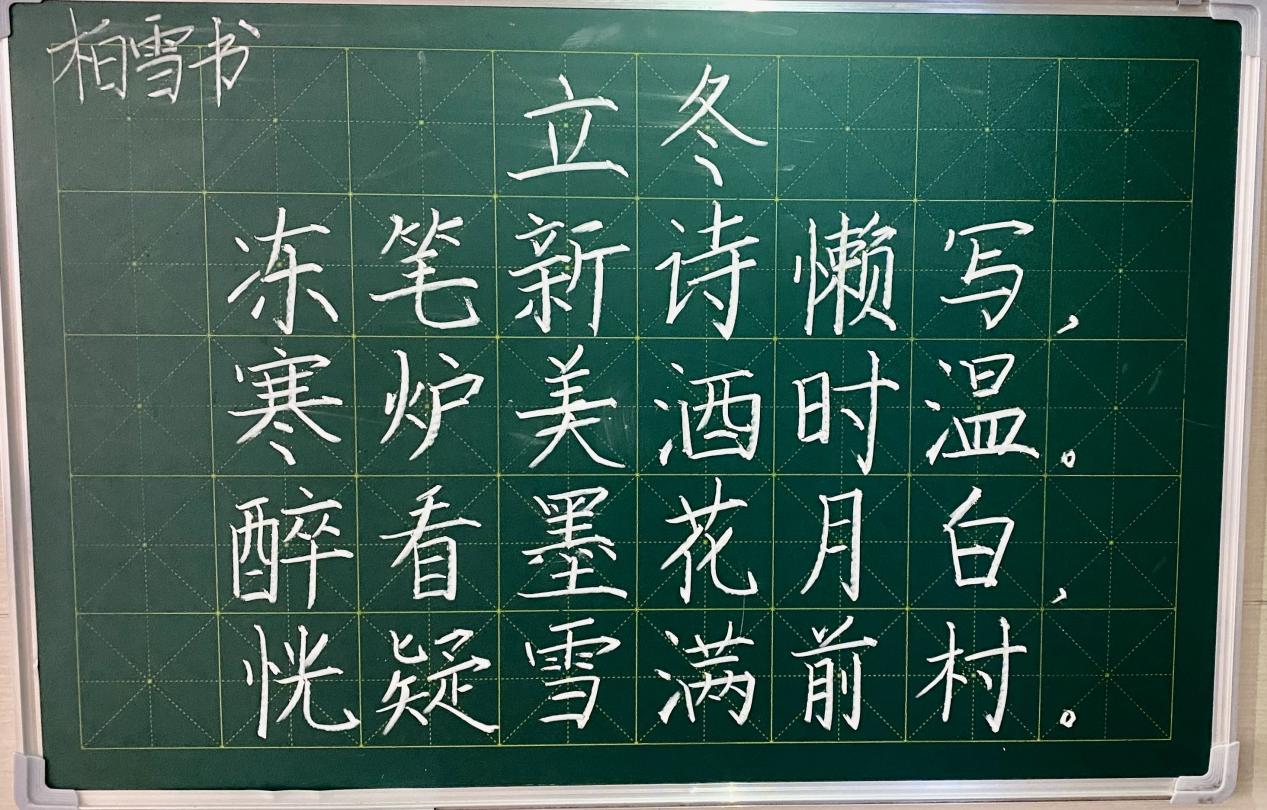 柏雪书
立冬
冻笔新诗懒写，
寒炉美酒时温。
醉看墨花月白，
恍疑雪满前村。